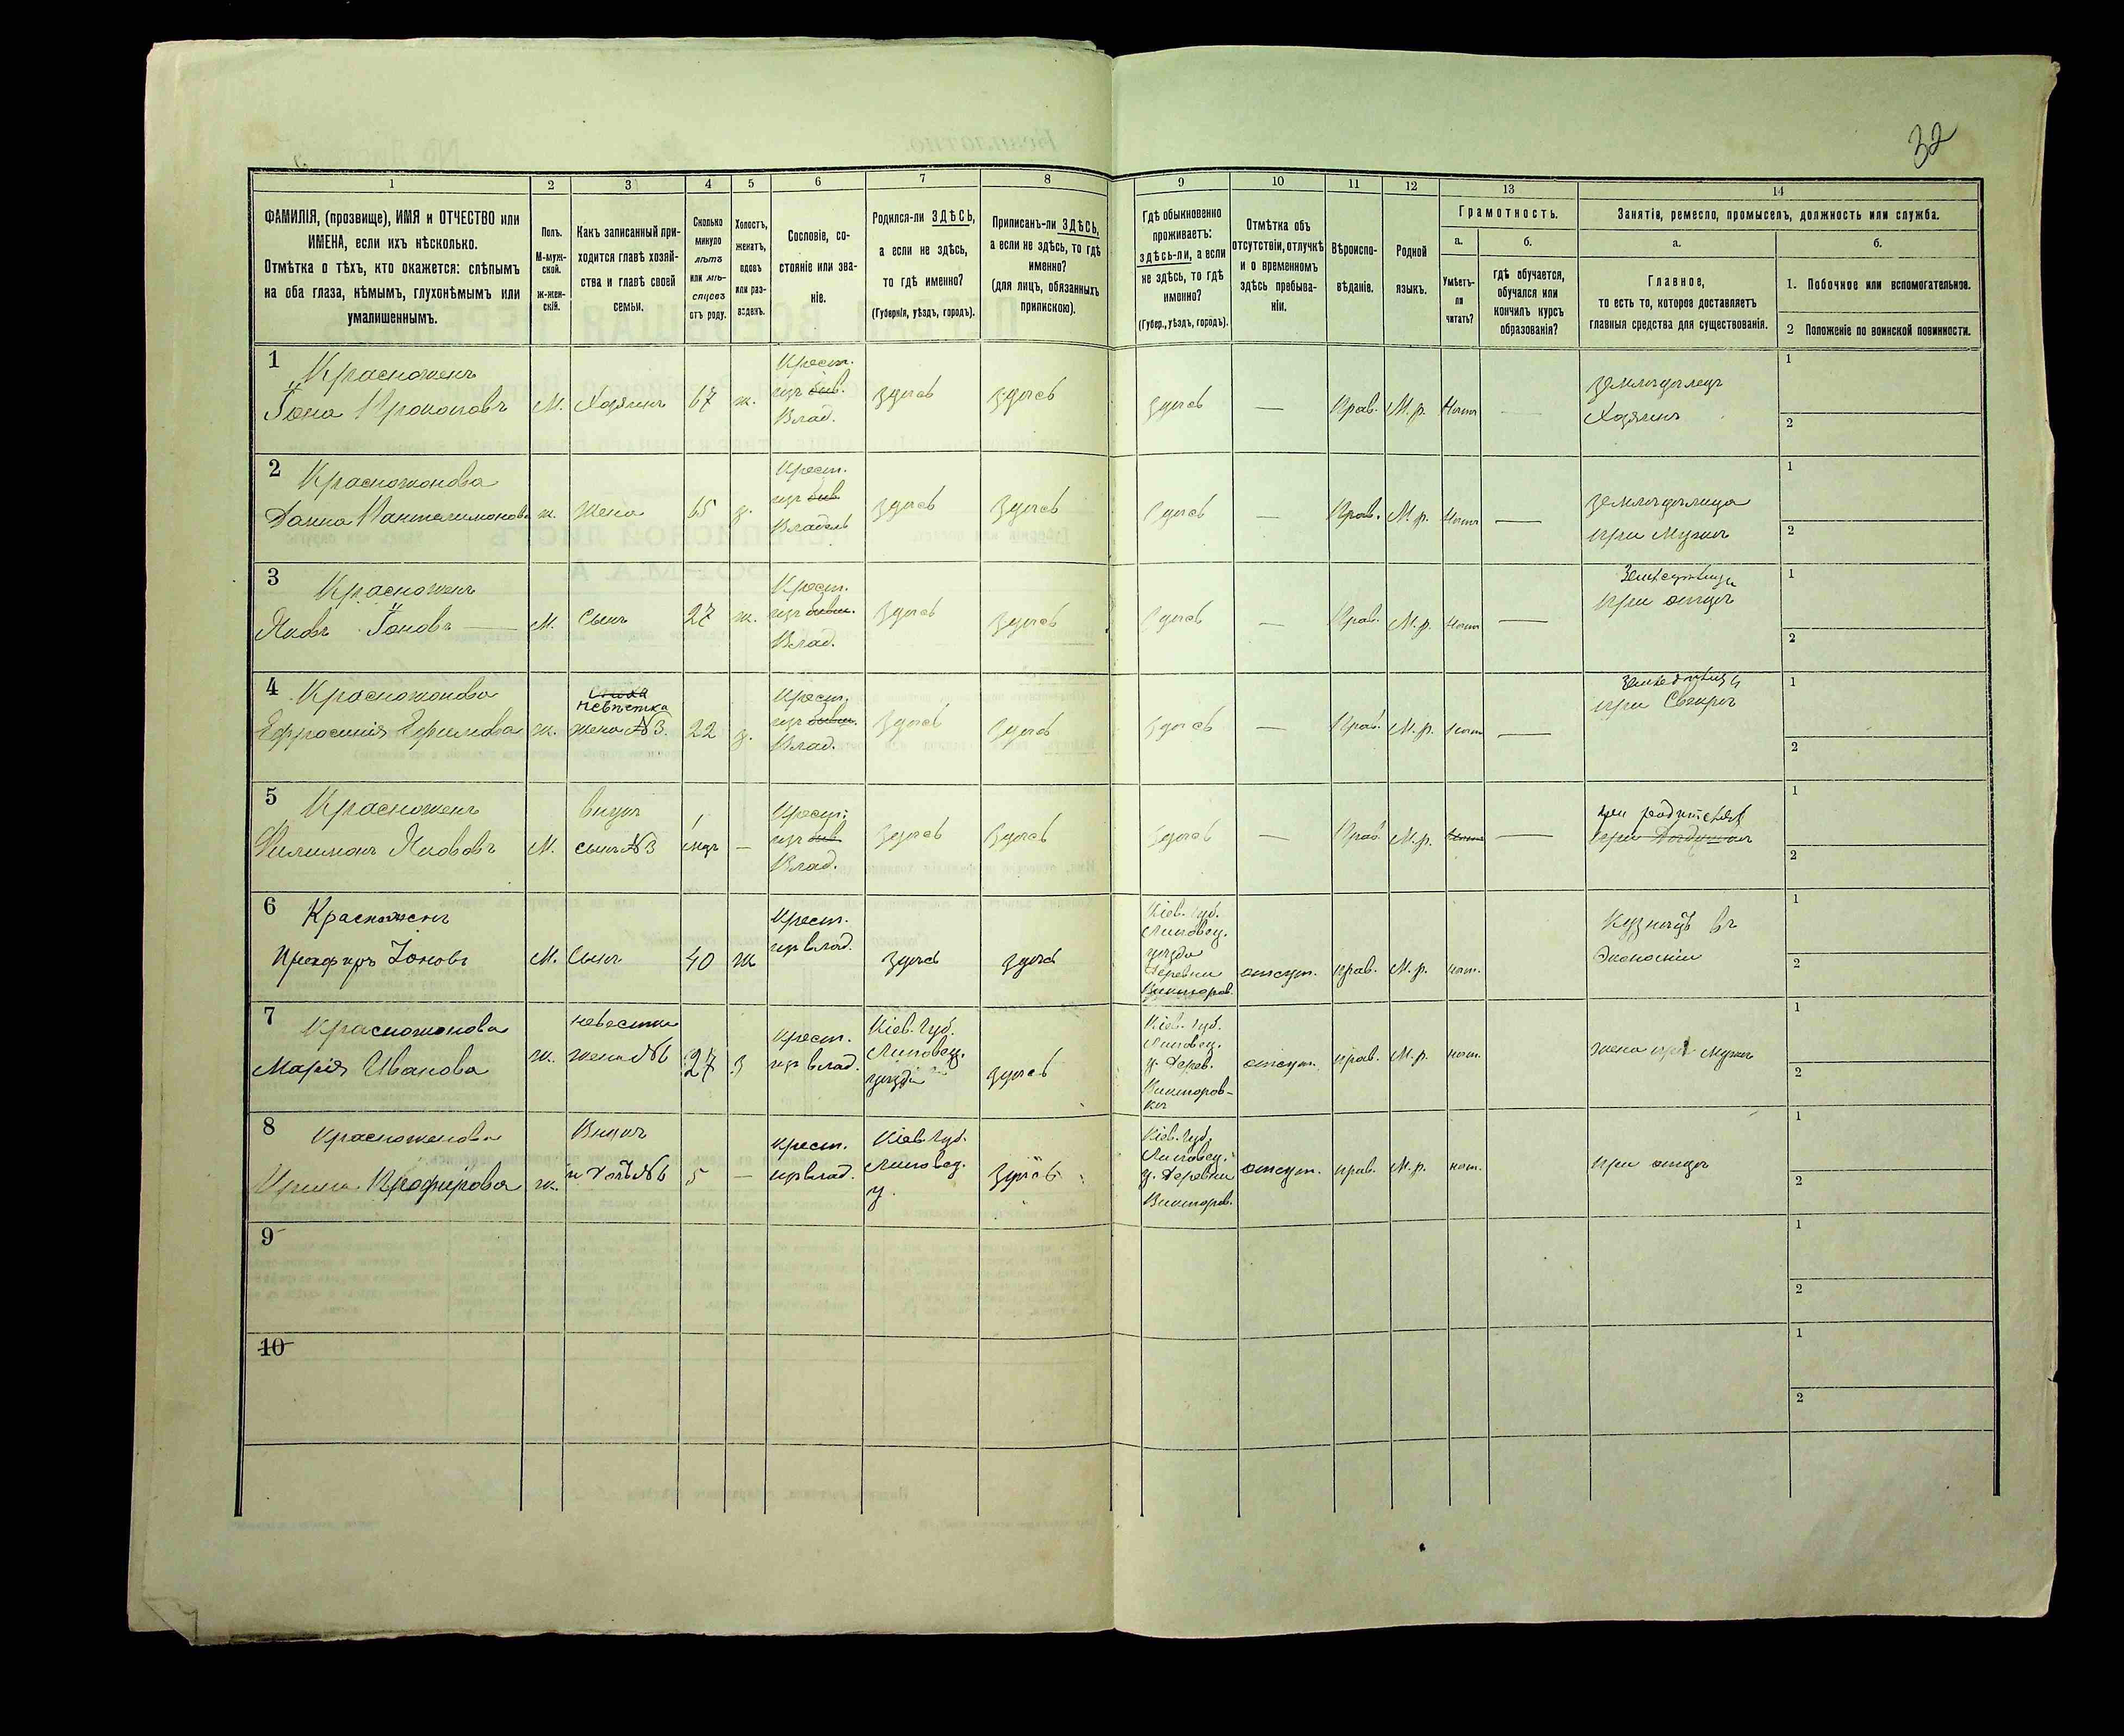 32
1
2
3
4
5
6
7
8
9
10
11
12
13
14
ФАМИЛІЯ, (прозвище), ИМЯ и ОТЧЕСТВО или
ИМЕНА, если ихъ нѣсколько.
Отмѣтка о тѣхъ, кто окажется: слѣпымъ
на оба глаза, нѣмымъ, глухонѣмымъ или
умалишеннымъ.
Полъ.
М-муж-
ской.
ж-жен-
скій.
Какъ записанный при-
ходится главѣ хозяй-
ства и главѣ своей
семьи.
Сколько
минуло
лѣтъ
или мѣ-
сяцевъ
отъ роду.
Холостъ,
женатъ,
вдовъ
или раз-
веденъ.
Сословіе, со-
стояніе или зва-
ніе.
Родился-ли ЗДѢСЬ,
а если не здѣсь,
то гдѣ именно?
(Губернія, уѣздъ, городъ).
Приписанъ-ли ЗДѢСЬ,
а если не здѣсь, то гдѣ
именно?
(для лицъ, обязанныхъ
припискою).
Гдѣ обыкновенно
проживаетъ:
здѣсь-ли, а если
не здѣсь, то гдѣ
именно?
(Губер., уѣздъ, городъ).
Отмѣтка объ
отсутствіи, отлучкѣ
и о временномъ
здѣсь пребыва-
ніи.
Вѣроиспо-
вѣданіе.
Родной
языкъ.
Грамотность.
а.
Умѣетъ-
ли
читать?
б.
гдѣ обучается,
обучался или
кончилъ курсъ
образованія?
Занятіе, ремесло, промыселъ, должность или служба.
а.
Главное,
то есть то, которое доставляетъ
главныя средства для существованія.
б.
1. Побочное или вспомогательное.
2 Положеніе по воинской повинности.
1
Красноженъ
Іона Прокоповъ
М.
Хозяинъ
67
ж.
Крест.
изъ быв.
Влад.
здѣсь
здѣсь
здѣсь
—
Прав.
М. р.
Нѣтъ
—
земледѣлецъ
Хозяинъ
1
2
2
Красножонова
Домна Пантелимонова
ж.
Жена
65
з.
Крест.
изъ быв
Владѣль
здѣсь
здѣсь
здѣсь
—
Прав.
М. р.
Нѣтъ
—
земледѣлица
при Мужѣ
1
2
3
Красноженъ
Яковъ Іоновъ —
М.
Сынъ
27
ж.
Крест.
изъ бывш.
Влад.
здѣсь
здѣсь
здѣсь
—
Прав.
М. р.
Нѣтъ
—
при отцѣ
1
2
4
Красножонова
Ефросинія Ефимова
ж.
невѣстка
жена №3.
22
з.
Крест.
изъ бывш.
Влад.
здѣсь
здѣсь
здѣсь
—
Прав.
М. р.
Нѣтъ
—
при Свекрѣ
1
2
5
Красноженъ
Филимонъ Якововъ
М.
внукъ
сынъ №3
1
мѣс
—
Крест.
изъ быв
Влад.
здѣсь
здѣсь
здѣсь
—
Прав.
М. р.
—
при родителяхъ
при Дѣдушкѣ
1
2
6
Красноженъ
Іоновъ
М.
Сынъ
40
ж
Крест.
изъ влад.
здѣсь
здѣсь
Кіев. Губ.
Липовец.
уѣзда
Деревни
Викторов.
отсут.
прав.
М. р.
нѣт.
Кузнецъ въ
Экономіи
1
2
7
Красножонова
Марія Иванова
ж.
невестка
жена №6
27
з
крест.
изъ влад.
Кіев. Губ.
Липовец.
уѣзда
здѣсь
Кіев. Губ.
Липовец.
у. Дерев.
Викторов-
кѣ
отсут.
прав.
М. р.
нѣт.
жена при мужѣ
1
2
8
Красноженова
Профирова
ж.
Внука
и Дочь №6
5
—
крест.
изъ влад.
Кіев. Губ.
Липовец.
у.
здѣсь
Кіев. Губ.
Липовец.
у. Деревни
Викторов.
отсут.
прав.
М. р.
нѣт.
при отцѣ
1
2
9
1
2
10
1
2